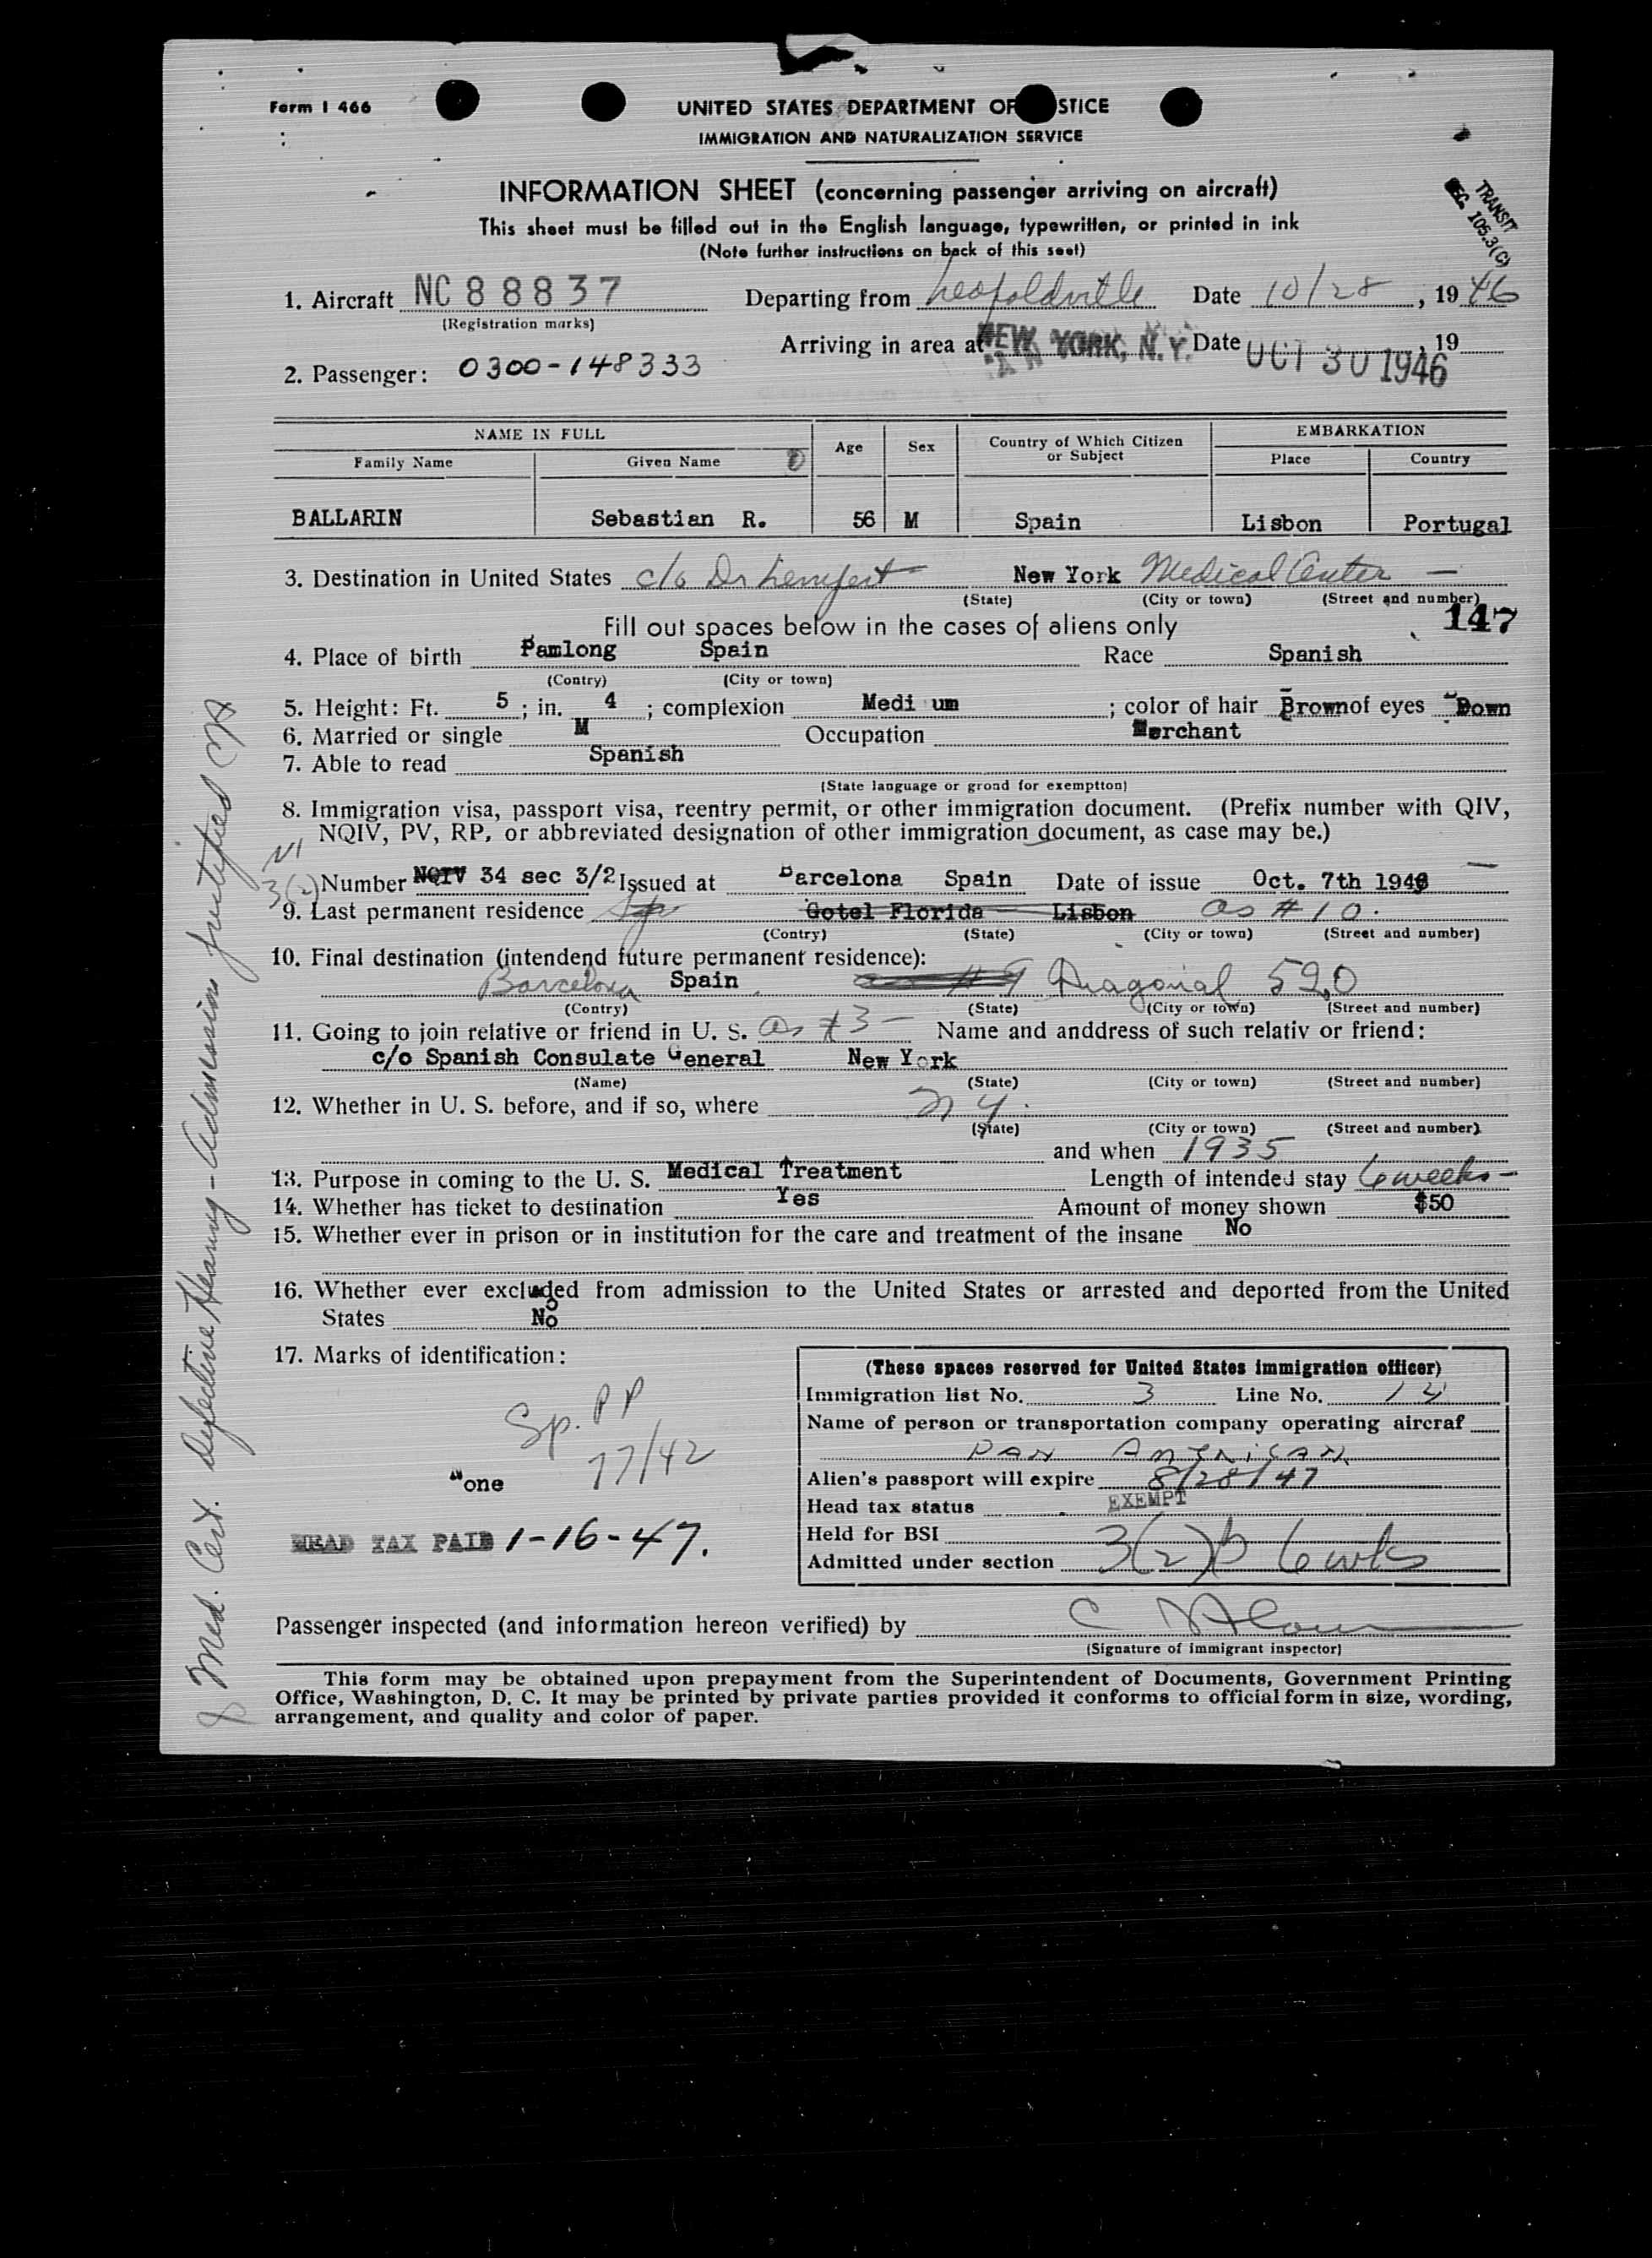 Form I 466
UNITED STATES DEPARTMENT OF STICE
IMMIGRATION AND NATURALIZATION SERVICE
TRANSIT
SEC. 105.3(C)
INFORMATION SHEET (concerning passenger arriving on aircraft)
This sheet must be filled out in the English language, typewritten, or printed in ink
(Note further instructions on back of this seet)
1. Aircraft NC 88837 Departing from Leopoldville Date 10/28, 1946
(Registration marks)
Arriving in area at NEW YORK, N.Y. Date OCT 30 1946, 19
2. Passenger: 0300-148333
NAME IN FULL Age Sex Country of Which Citizen or Subject EMBARKATION
Family Name Given Name Place Country
BALLARIN Sebastian R. 56 M Spain Lisbon Portugal
3. Destination in United States c/o Dr New York Medical Center —
(State) (City or town) (Street and number)
147
Fill out spaces below in the cases of aliens only
4. Place of birth Pamlong Spain Race Spanish
(Contry) (City or town)
5. Height: Ft. 5; in. 4; complexion Medi um; color of hair Brown of eyes Down
6. Married or single M Occupation Merchant
7. Able to read Spanish
(State language or grond for exemptton)
8. Immigration visa, passport visa, reentry permit, or other immigration document. (Prefix number with QIV,
NQIV, PV, RP, or abbreviated designation of other immigration document, as case may be.)
NI
3(2) Number NQIV 34 sec 3/2 Issued at Barcelona Spain Date of issue Oct. 7th 1946 —
9. Last permanent residence Gotel Florida Lisbon as #10.
(Contry) (State) (City or town) (Street and number)
10. Final destination (intendend future permanent residence):
Barcelona Spain #9 Diagonal 520
(Contry) (State) (City or town) (Street and number)
11. Going to join relative or friend in U. S. as #3 — Name and anddress of such relativ or friend:
c/o Spanish Consulate General New York
(Name) (State) (City or town) (Street and number)
12. Whether in U. S. before, and if so, where N Y.
(State) (City or town) (Street and number)
and when 1935
13. Purpose in coming to the U. S. Medical Treatment Length of intended stay 6 weeks —
14. Whether has ticket to destination Yes Amount of money shown $50
15. Whether ever in prison or in institution for the care and treatment of the insane No
16. Whether ever excluded from admission to the United States or arrested and deported from the United
States No
17. Marks of identification:
Sp. PP
77/42
None
HEAD TAX PAID 1-16-47.
(These spaces reserved for United States immigration officer)
Immigration list No. 3 Line No. 14
Name of person or transportation company operating aircraf
PAN AMERICAN
Alien's passport will expire 8/28/47
Head tax status EXEMPT
Held for BSI
Admitted under section 3(2) b 6 wks
Passenger inspected (and information hereon verified) by C
(Signature of immigrant inspector)
This form may be obtained upon prepayment from the Superintendent of Documents, Government Printing
Office, Washington, D. C. It may be printed by private parties provided it conforms to official form in size, wording,
arrangement, and quality and color of paper.
Med. Cert. Defective Hearing - Admission justified